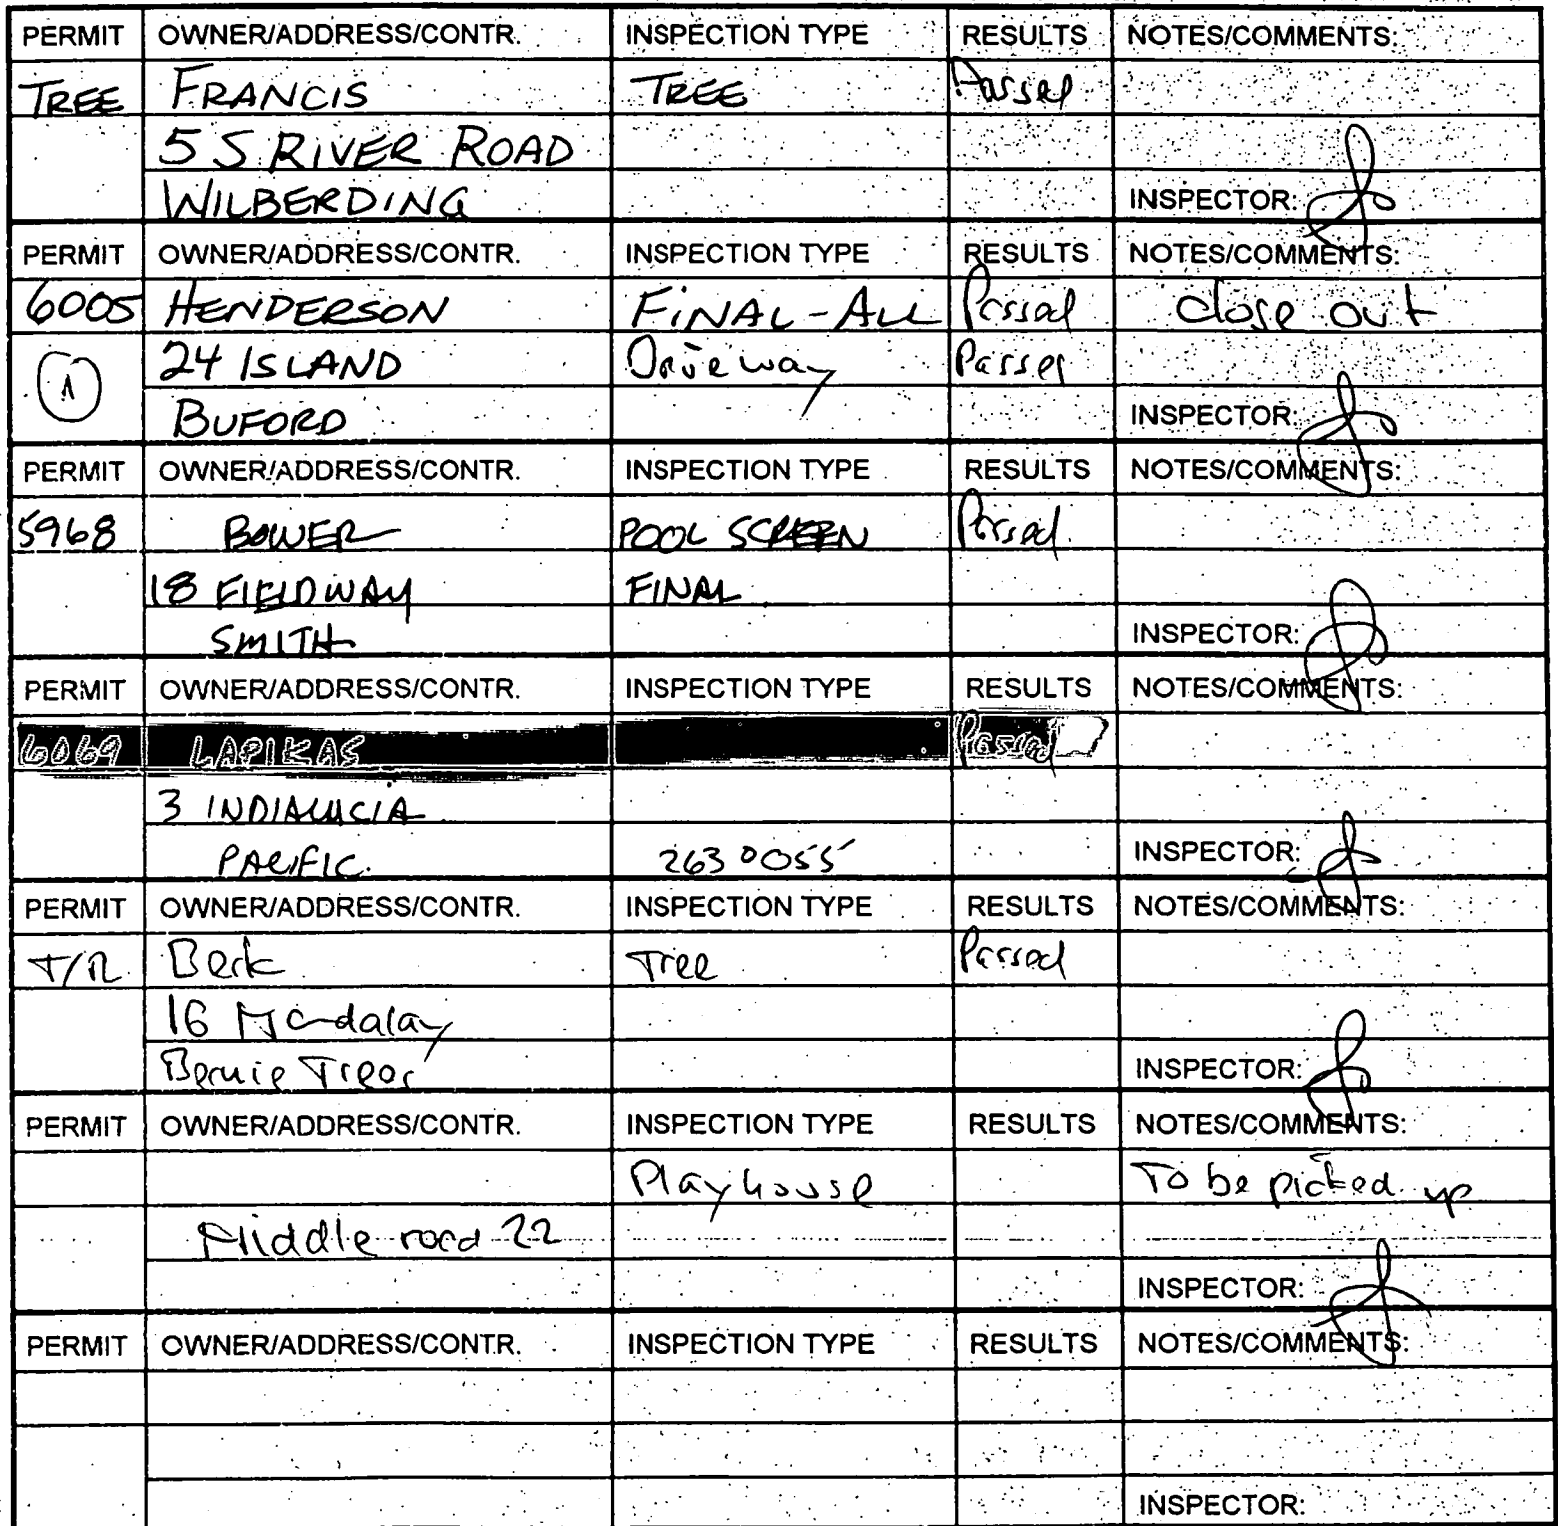 PERMIT OWNER/ADDRESS/CONTR. INSPECTION TYPE RESULTS NOTES/COMMENTS:
TREE FRANCIS TREE Passed
5 S RIVER ROAD
WILBERDING INSPECTOR:
PERMIT OWNER/ADDRESS/CONTR. INSPECTION TYPE RESULTS NOTES/COMMENTS:
6005 HENDERSON FINAL-ALL Passed close out
A 24 ISLAND Driveway Passed
BUFORD INSPECTOR:
PERMIT OWNER/ADDRESS/CONTR. INSPECTION TYPE RESULTS NOTES/COMMENTS:
5968 BOWER POOL SCREEN Passed
18 FIELDWAY FINAL
SMITH INSPECTOR:
PERMIT OWNER/ADDRESS/CONTR. INSPECTION TYPE RESULTS NOTES/COMMENTS:
6069 LAPIKAS Passed
3 INDIALUCIA
PACIFIC. 263 0055 INSPECTOR:
PERMIT OWNER/ADDRESS/CONTR. INSPECTION TYPE RESULTS NOTES/COMMENTS:
T/R Berk Tree Passed
16 Mandalay
Bernie Trees INSPECTOR:
PERMIT OWNER/ADDRESS/CONTR. INSPECTION TYPE RESULTS NOTES/COMMENTS:
Playhouse To be picked up
Middle road 22
INSPECTOR:
PERMIT OWNER/ADDRESS/CONTR. INSPECTION TYPE RESULTS NOTES/COMMENTS:
INSPECTOR: